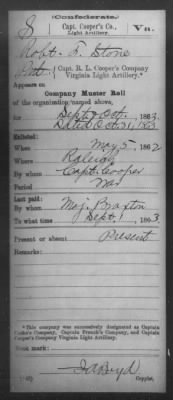 (Confederate.)
S Capt. Cooper's Co., Va.
Light Artillery.
Robt. F. Stone
Pvt, Capt. R. L. Cooper's Company
Virginia Light Artillery.*
Appears on
Company Muster Roll
of the organization named above,
for Sept & Oct., 1863.
Dated Oct 31, 1863
Enlisted:
When May 5, 1862
Where Raleigh
By whom Capt. Cooper
Period War
Last paid:
By whom Maj. Braxton
To what time Sept. 1, 1863
Present or absent Present
Remarks:
*This company was successively designated as Captain
Cooke's Company, Captain French's Company, and Captain
Cooper's Company Virginia Light Artillery.
Book mark:
J A Boyd
Copyist.